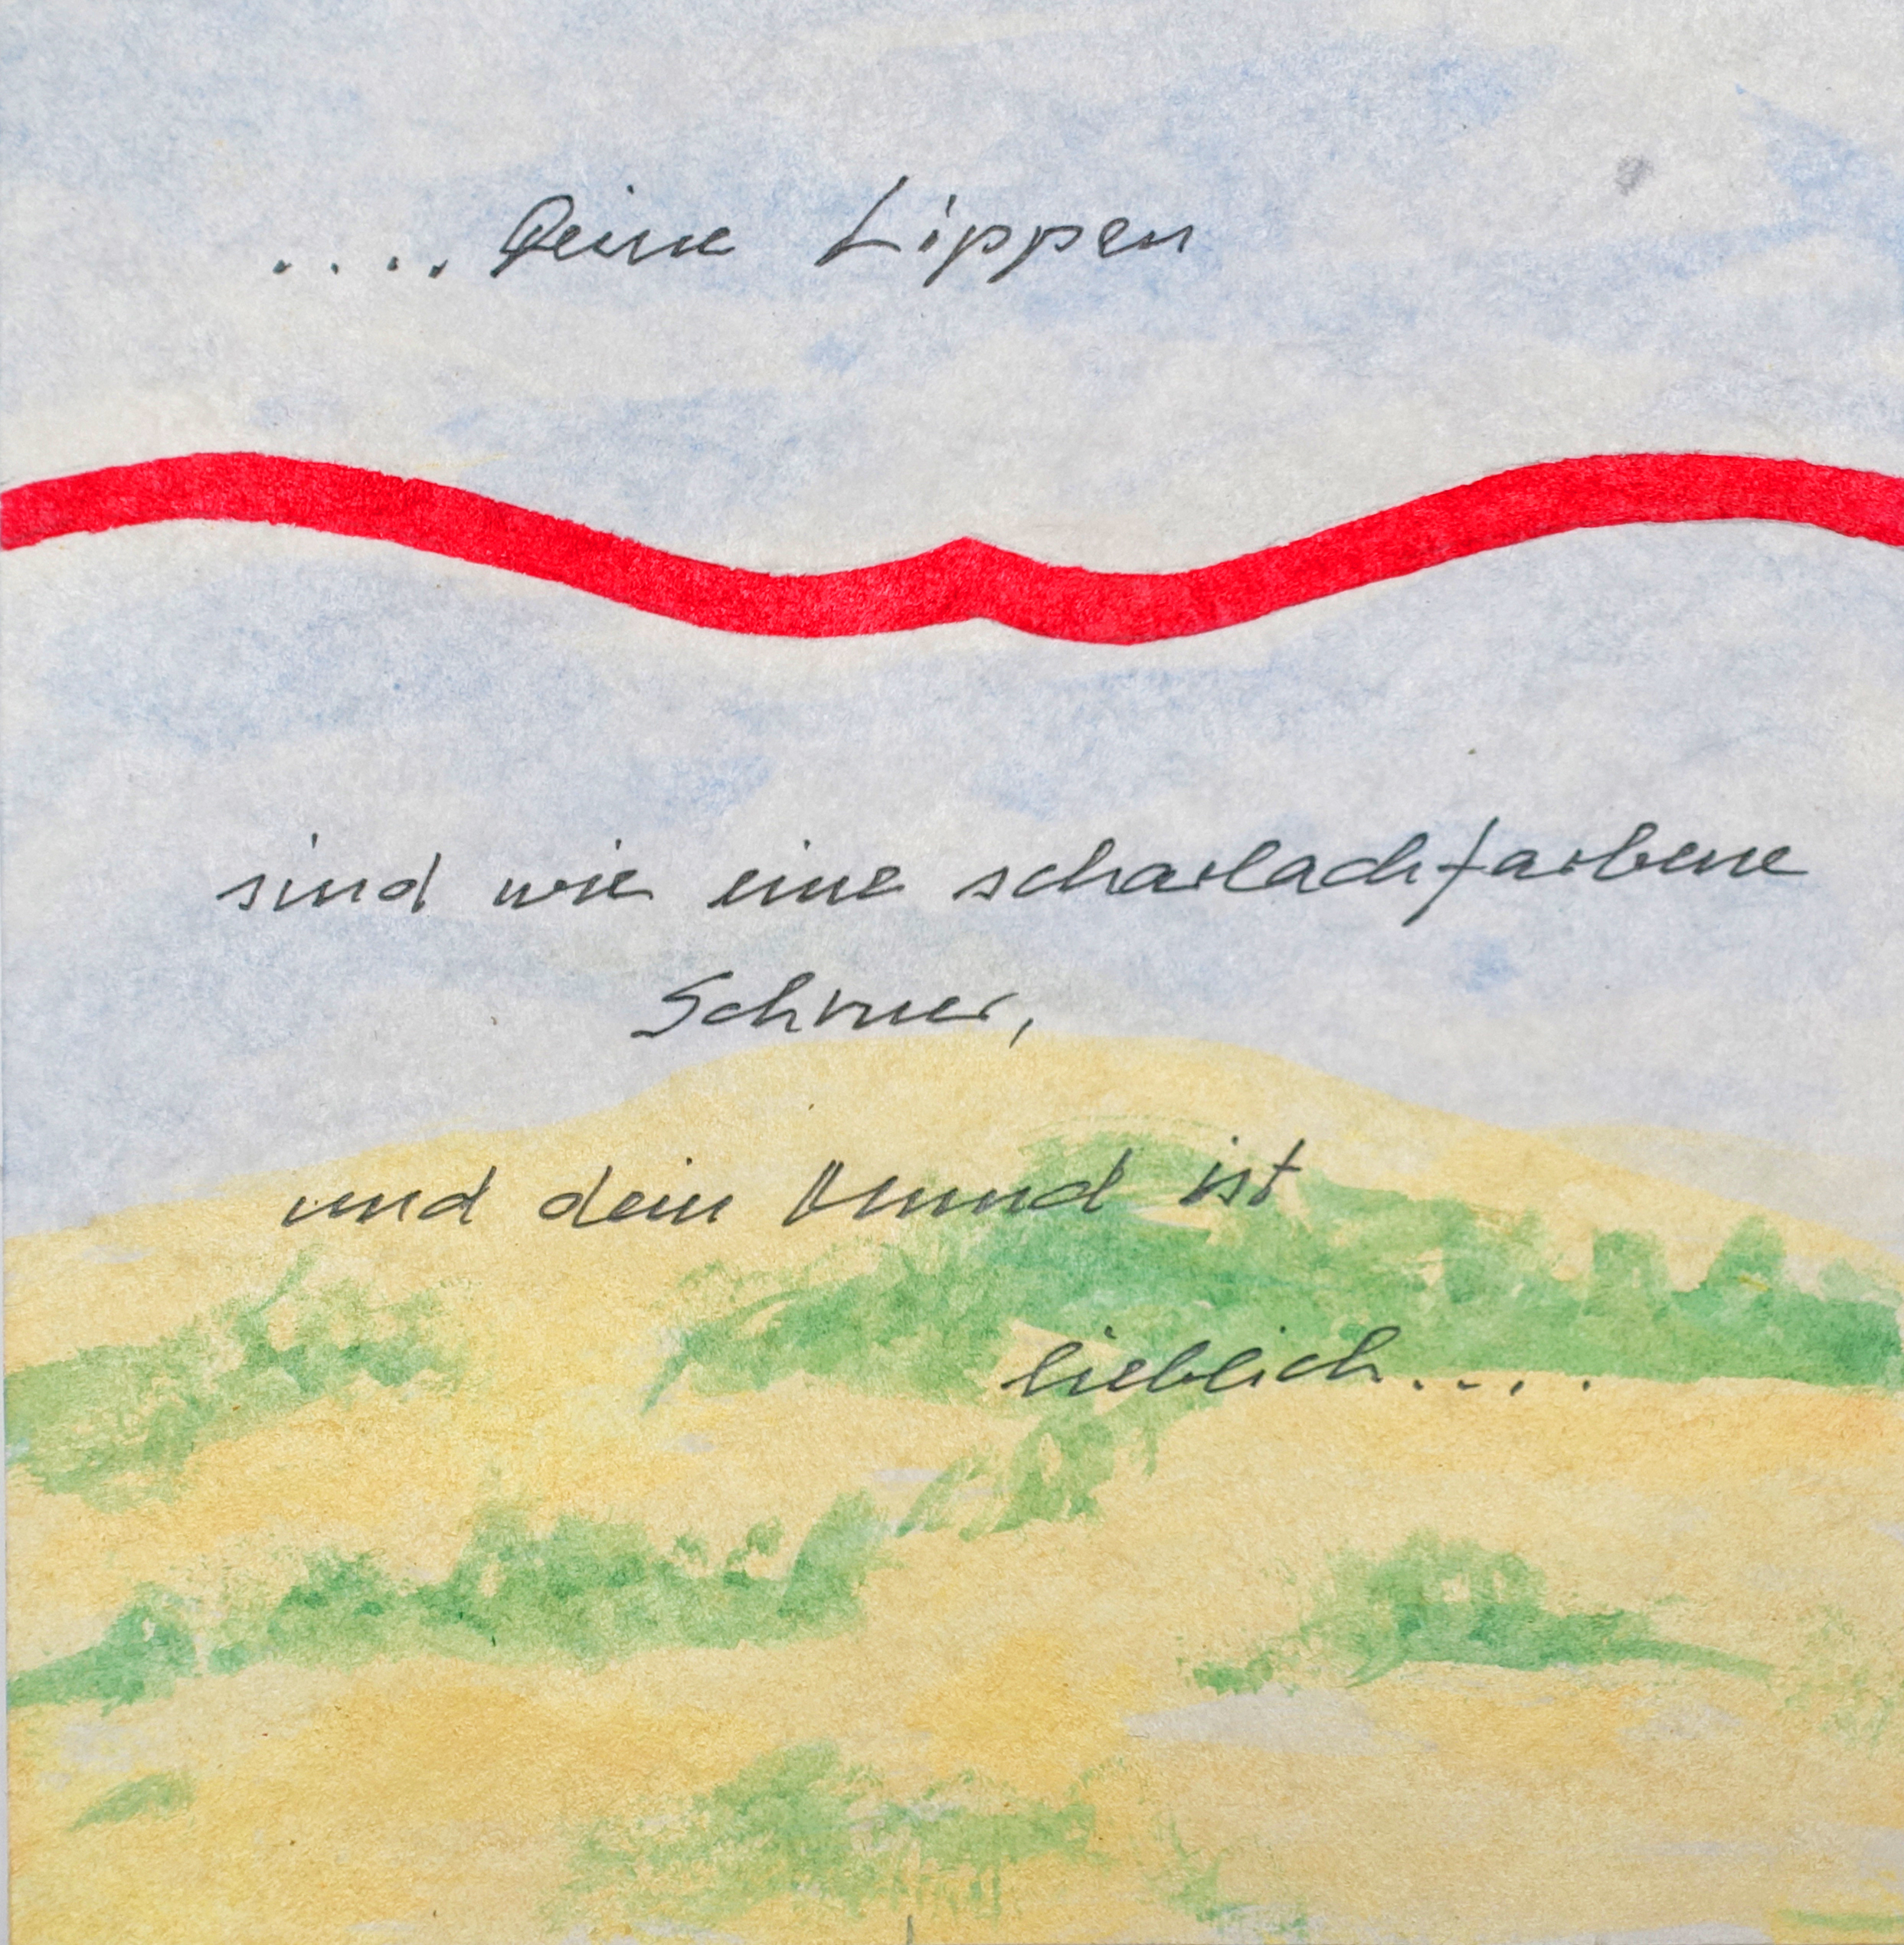 .... Deine Lippen
sind wie eine scharlachfarbene
Schnuer,
und dein Mund ist
lieblich....